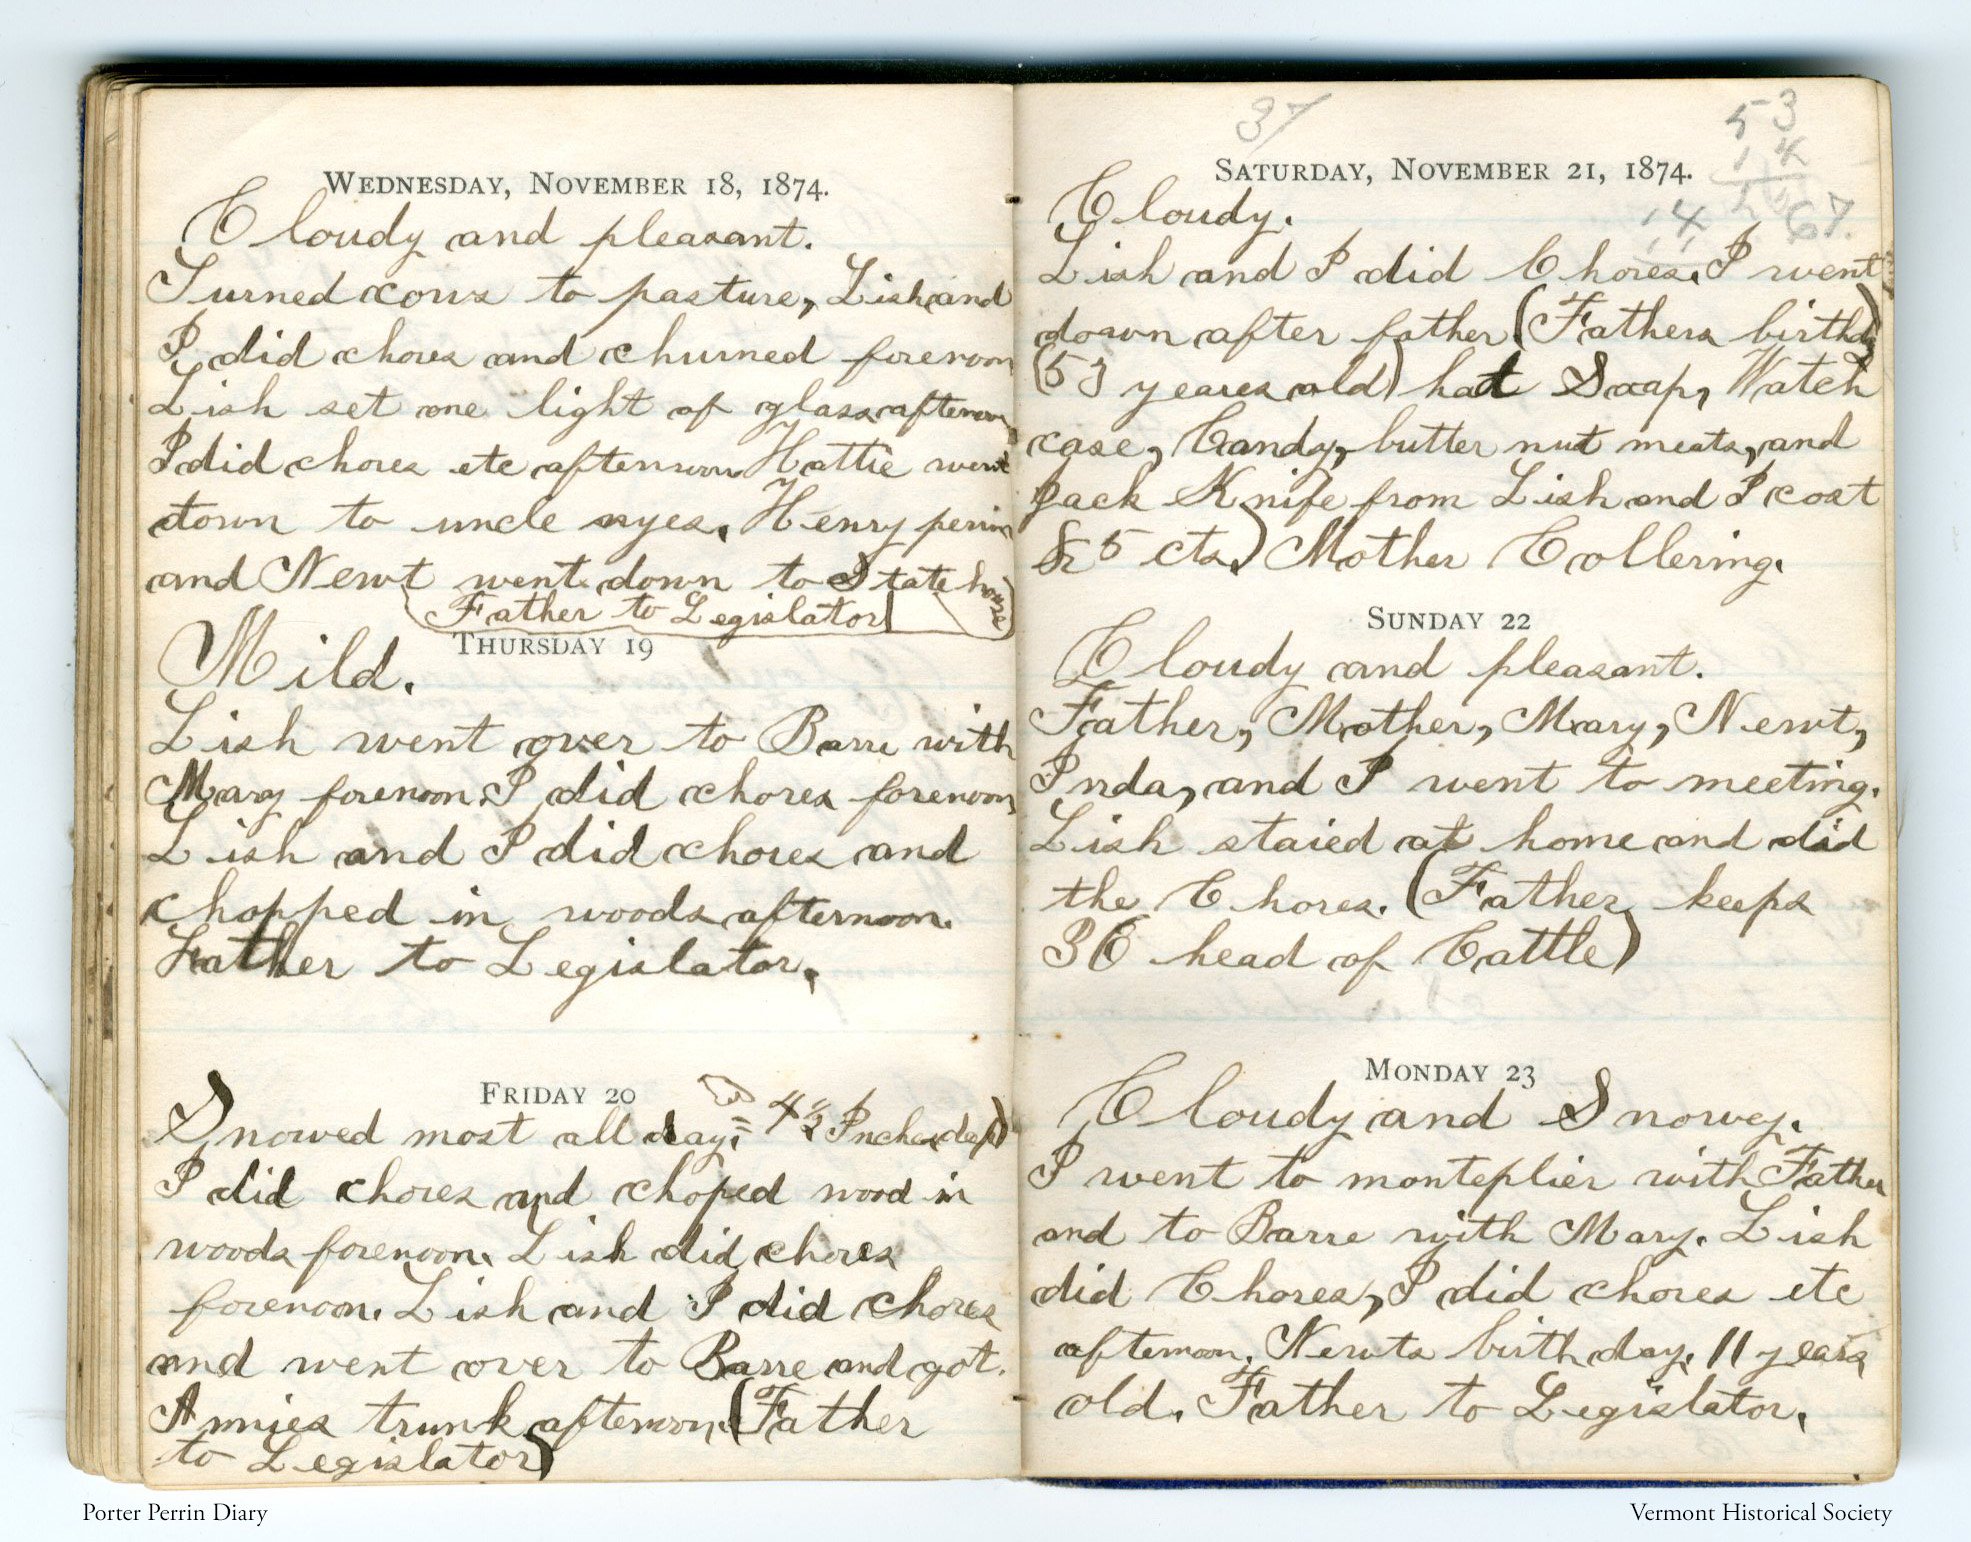 WEDNESDAY, NOVEMBER 18, 1874.
Cloudy and pleasant.
Turned cows to pasture, Lish and
I did chores and churned forenoon
Lish set one light of glass afternoon,
I did chores etc afternoon Hattie went
down to uncle nyes. Henry perrin
and Newt went down to State house
Father to Legislator
THURSDAY 19
Mild.
Lish went over to Barre with
Mary forenoon. I did chores forenoon,
Lish and I did chores and
chopped in woods afternoon.
Father to Legislator.
FRIDAY 20
Snowed most all day. = 4 1/2 Inches deep)
I did chores and choped wood in
woods forenoon. Lish did chores
forenoon. Lish and I did chores
and went over to Barre and got.
Annies trunk afternoon. (Father
to Legislator)
37
53
14
67.
14
SATURDAY, NOVEMBER 21, 1874.
Cloudy.
Lish and I did Chores. I went
down after father (Fathers birthday)
(53 yeares old) had Soap, Watch
case, Candy, butter nut meats, and
Jack Knife from Lish and I cost
85 cts.) Mother Collering.
SUNDAY 22
Cloudy and pleasant.
Father, Mother, Mary, Newt,
Inda, and I went to meeting.
Lish staied at home and did
the Chores. (Father keeps
36 head of Cattle)
MONDAY 23
Cloudy and Snowey.
I went to monteplier with Father
and to Barre with Mary. Lish
did Chores, I did chores etc
afternoon. Newts birth day. 11 years
old. Father to Legislator.
Porter Perrin Diary
Vermont Historical Society